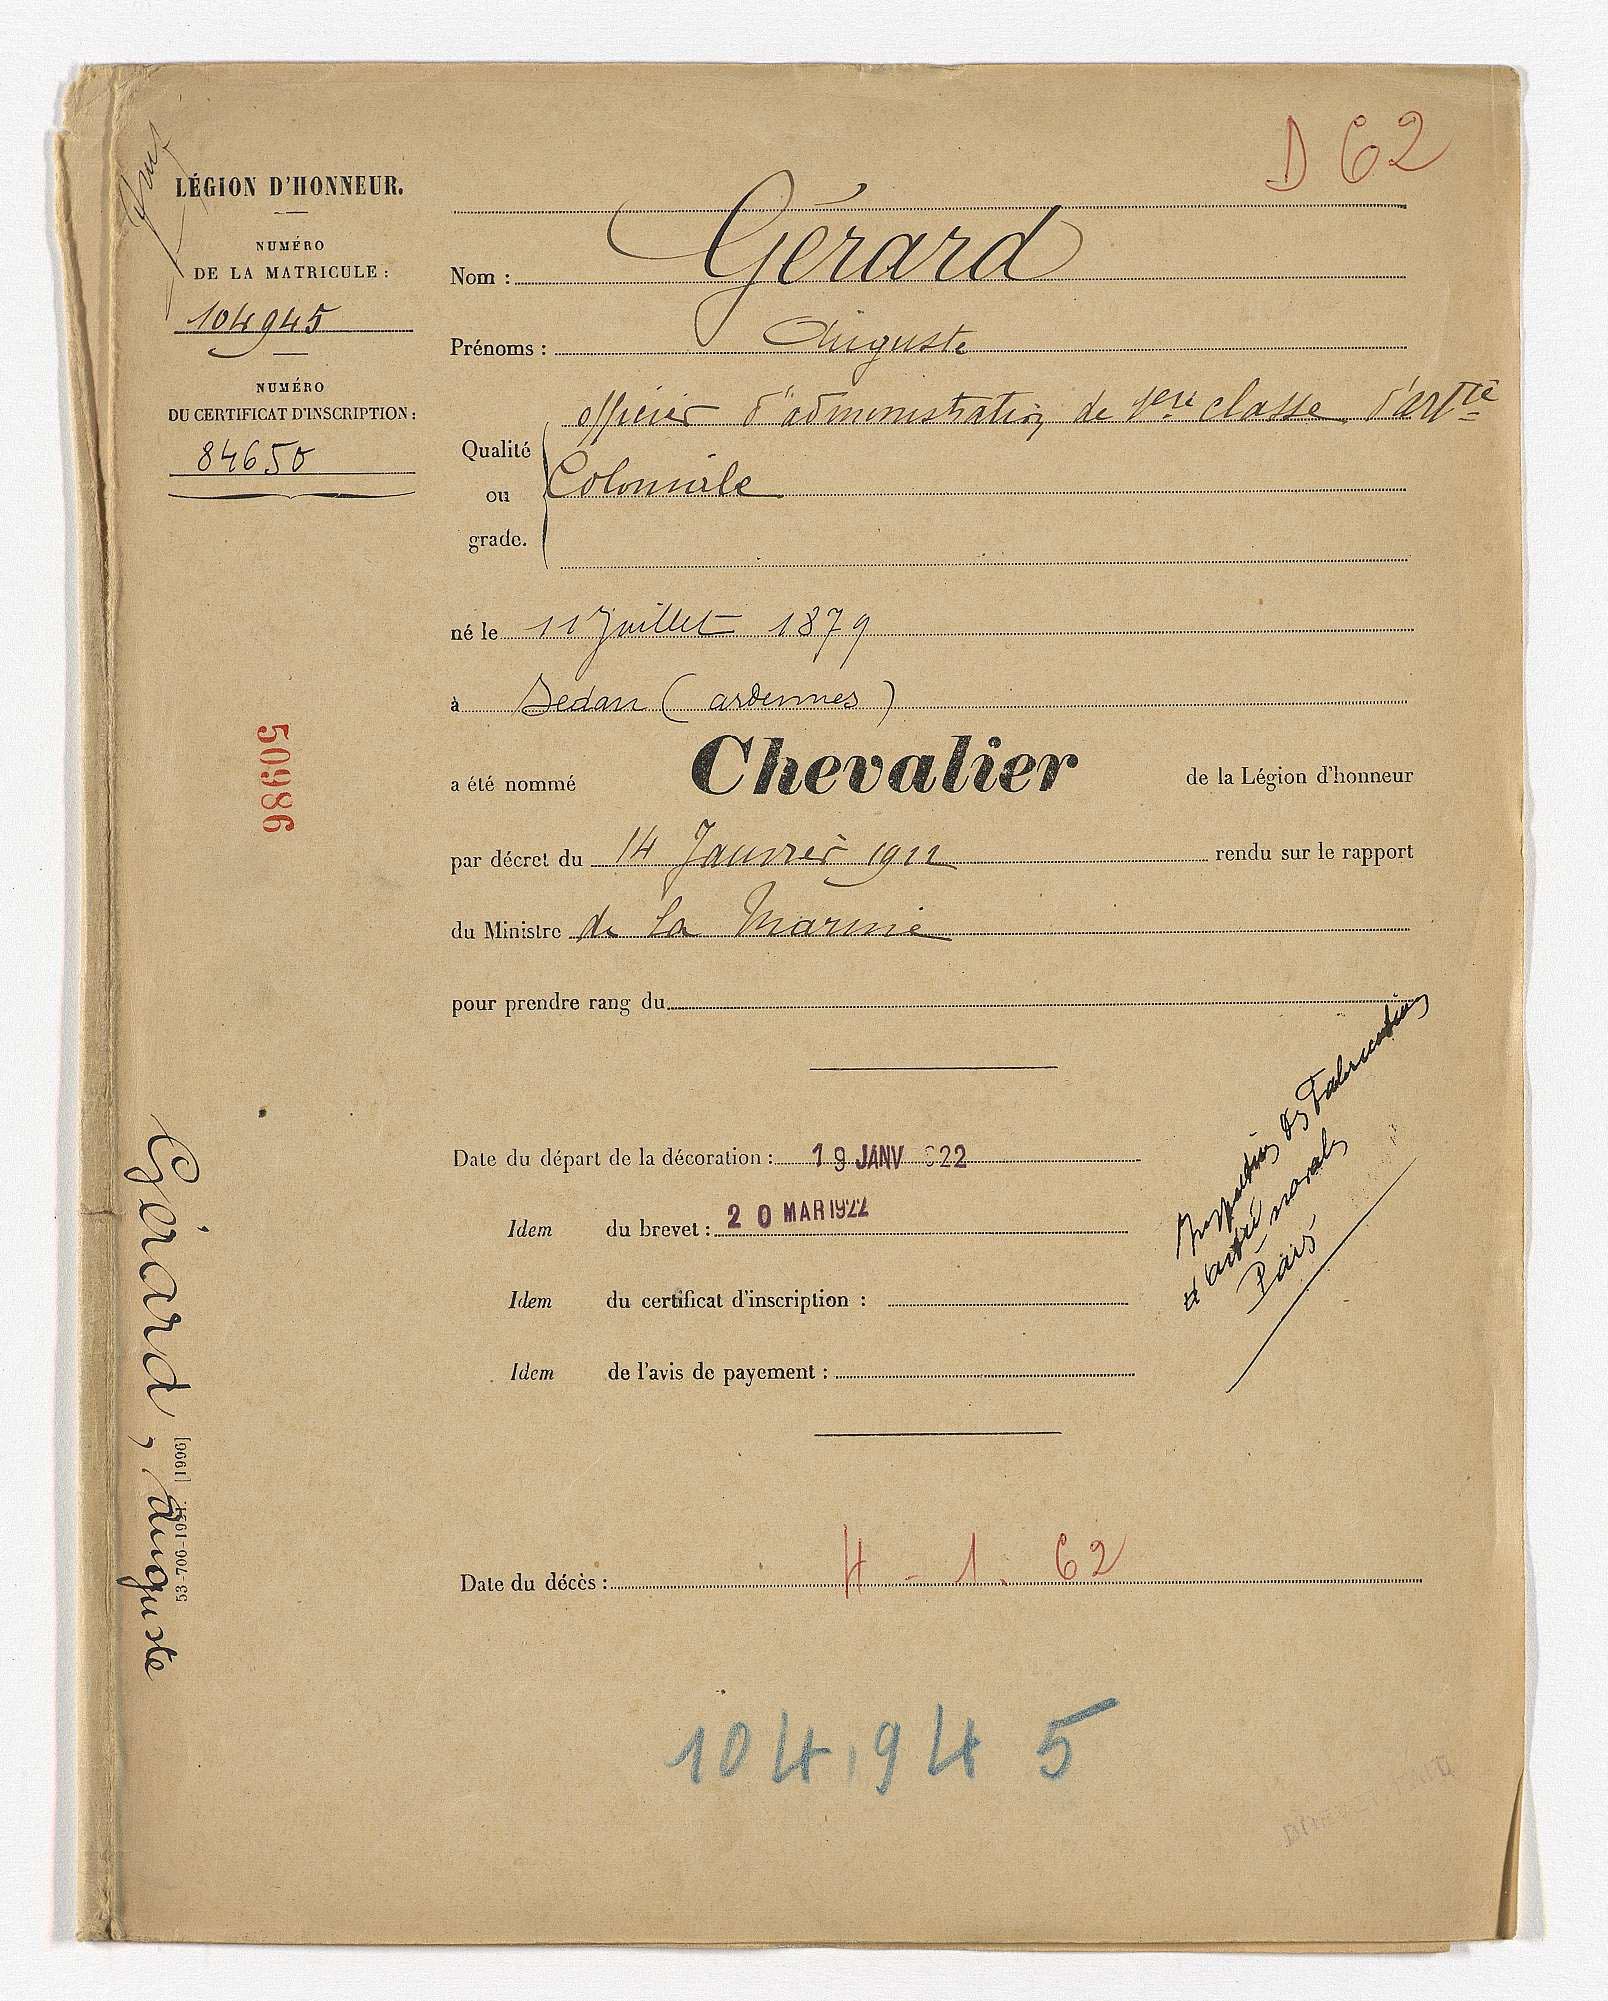 D 62
LÉGION D'HONNEUR.
NUMÉRO
DE LA MATRICULE :
104945
NUMÉRO
DU CERTIFICAT D'INSCRIPTION :
84650
Nom : Gérard
Prénoms : Auguste
Qualité
ou
grade.
officier d'administration de 1ère classe d'artie
Coloniale
né le 11 Juillet 1879
à Sedan (ardennes)
50986
a été nommé Chevalier de la Légion d'honneur
par décret du 14 Janvier 1922 rendu sur le rapport
du Ministre de la Marine
pour prendre rang du
Inspection des Fabrications
d'artie navales
Paris
Date du départ de la décoration : 19 JANV 922
Idem du brevet : 20 MAR 1922
Idem du certificat d'inscription :
Idem de l'avis de payement :
Gérard, Auguste
53-706-1921. [1906]
Date du décès : 4 - 1. 62
104,945